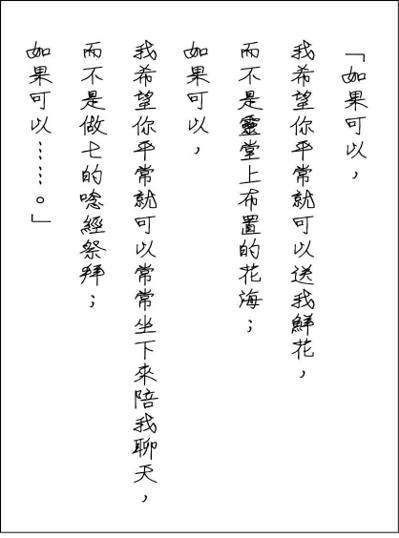 「如果可以，
我希望你平常就可以送我鮮花，
而不是靈堂上布置的花海；
如果可以，
我希望你平常就可以常常坐下來陪我聊天，
而不是做七的唸經祭拜；
如果可以……。」